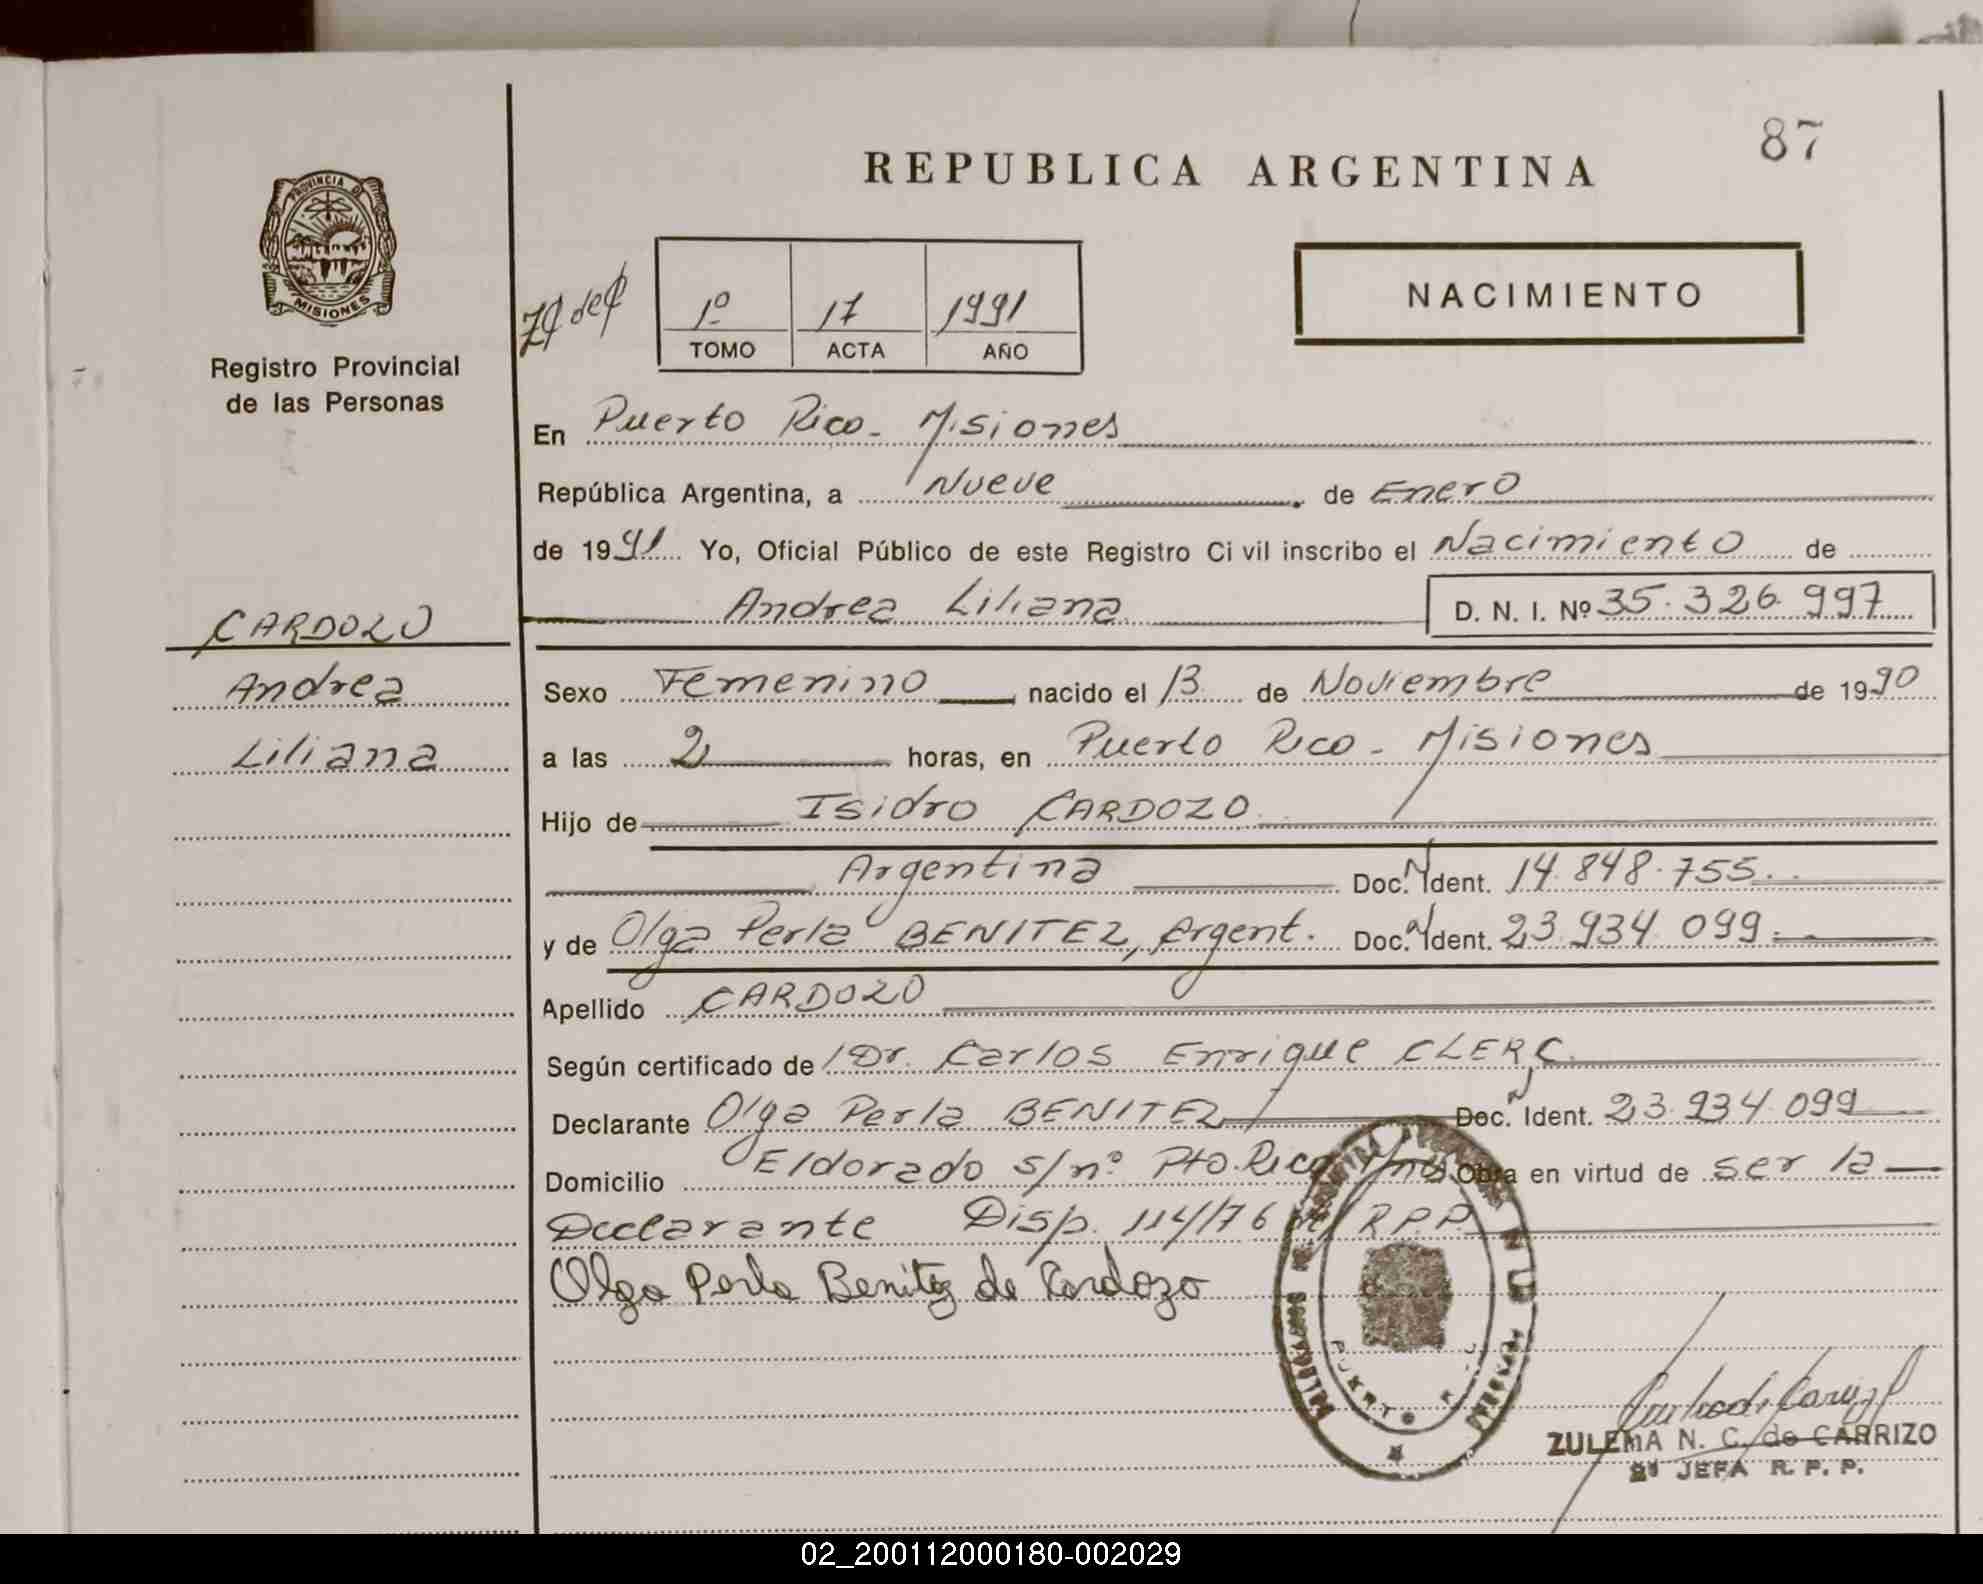 87
REPUBLICA ARGENTINA
PROVINCIA DE
MISIONES
Registro Provincial
de las Personas
1º 17 1991
TOMO ACTA AÑO
NACIMIENTO
En Puerto Rico - Misiones
República Argentina, a Nueve de Enero
de 1991 Yo, Oficial Público de este Registro Civil inscribo el Nacimiento de
Andrea Liliana D. N. I. Nº 35.326.997
CARDOZO
Andrea
Liliana
Sexo Femenino nacido el 13 de Noviembre de 1990
a las 2 horas, en Puerto Rico - Misiones
Hijo de Isidro CARDOZO
Argentina Doc. N Ident. 14.848.755.
y de Olga Perla BENITEZ, Argent. Doc. N Ident. 23.934.099.
Apellido CARDOZO
Según certificado de Dr. Carlos Enrique CLERC
Declarante Olga Perla BENITEZ Doc. N Ident. 23.934.099
Domicilio Eldorado s/nº Pto. Rico Mnes Obra en virtud de ser la
Declarante Disp. 114/76 R.P.P.
Olga Perla Benitez de Cardozo
PUERTO R
ZULEMA N. C. de CARRIZO
2ª JEFA R. P. P.
02_200112000180-002029